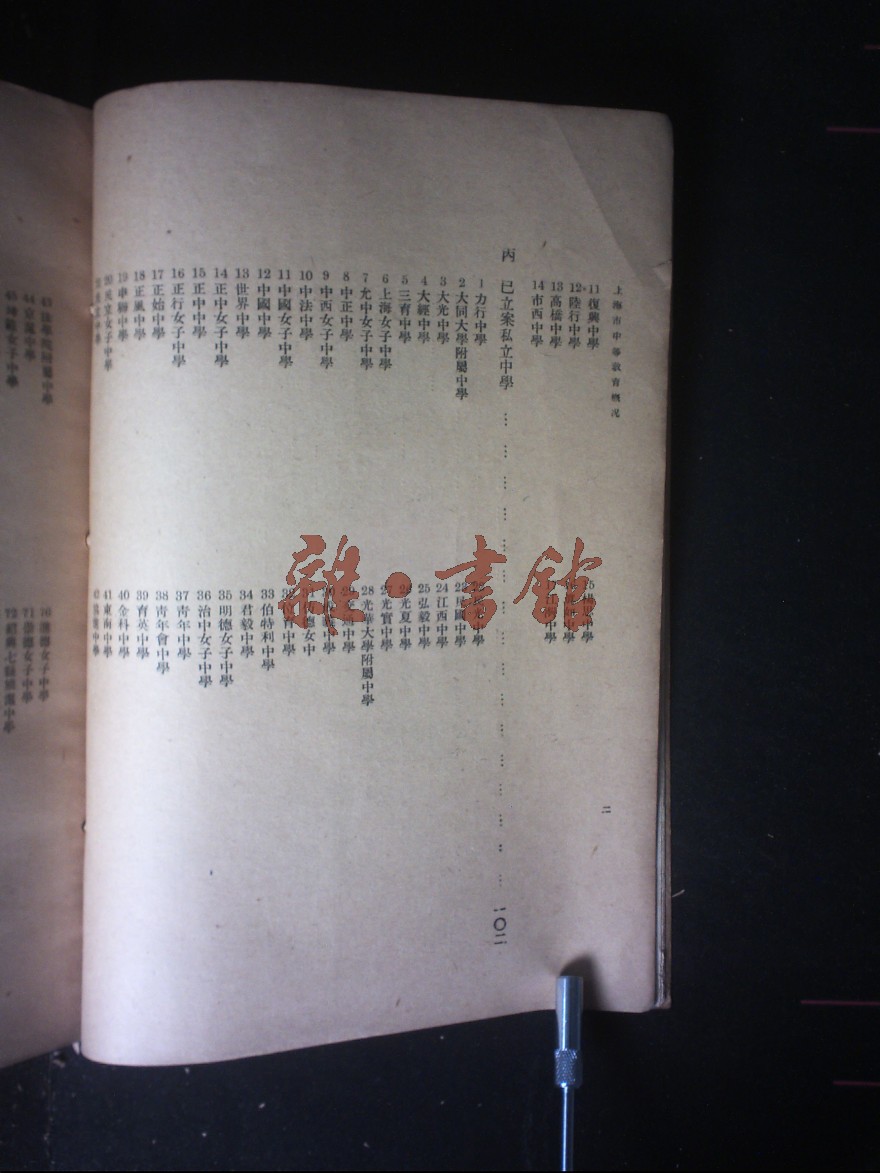 上海市中等教育概况
二
11復興中學
12陸行中學
13高橋中學
14市西中學
丙 已立案私立中學 … … … … … … … … … … … … … … … … 一〇二
1力行中學
2大同大學附屬中學
3大光中學
4大經中學
5三育中學
6上海女子中學
7允中女子中學
8中正中學
9中西女子中學
10中法中學
11中國女子中學
12中國中學
13世界中學
14正中女子中學
15正中中學
16正行女子中學
17正始中學
18正風中學
19申聯中學
女子中學
中學
24江西中學
25弘毅中學
光夏中學
27光實中學
28光華大學附屬中學
33伯特利中學
34君毅中學
35明德女子中學
36治中女子中學
37青年中學
38青年會中學
39育英中學
40金科中學
41東南中學
中學
44京滬中學
女子中學
女子中學
71崇德女子中學
72紹興七縣旅滬中學
雜·書館